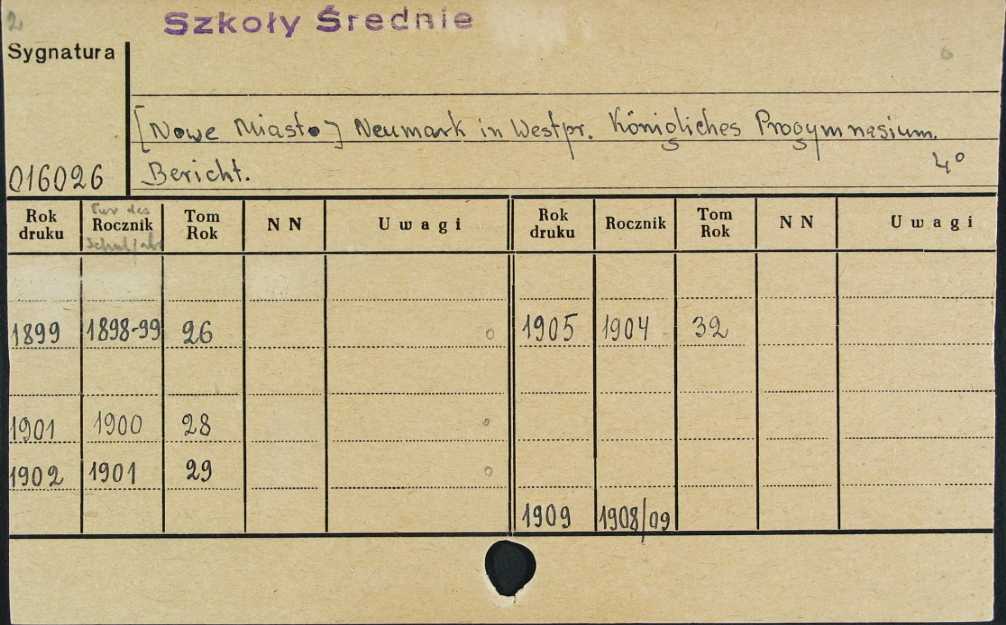 2
Szkoły Średnie
Sygnatura
[Nowe Miasto] Neumark in Westpr. Königliches Progymnasium.
016026 Bericht. 4°
Rok druku Rocznik Tom Rok NN Uwagi Rok druku Rocznik Tom Rok NN Uwagi
1899 1898-99 26 o 1905 1904 32
1901 1900 28 o
1902 1901 29 o
1909 1908/09